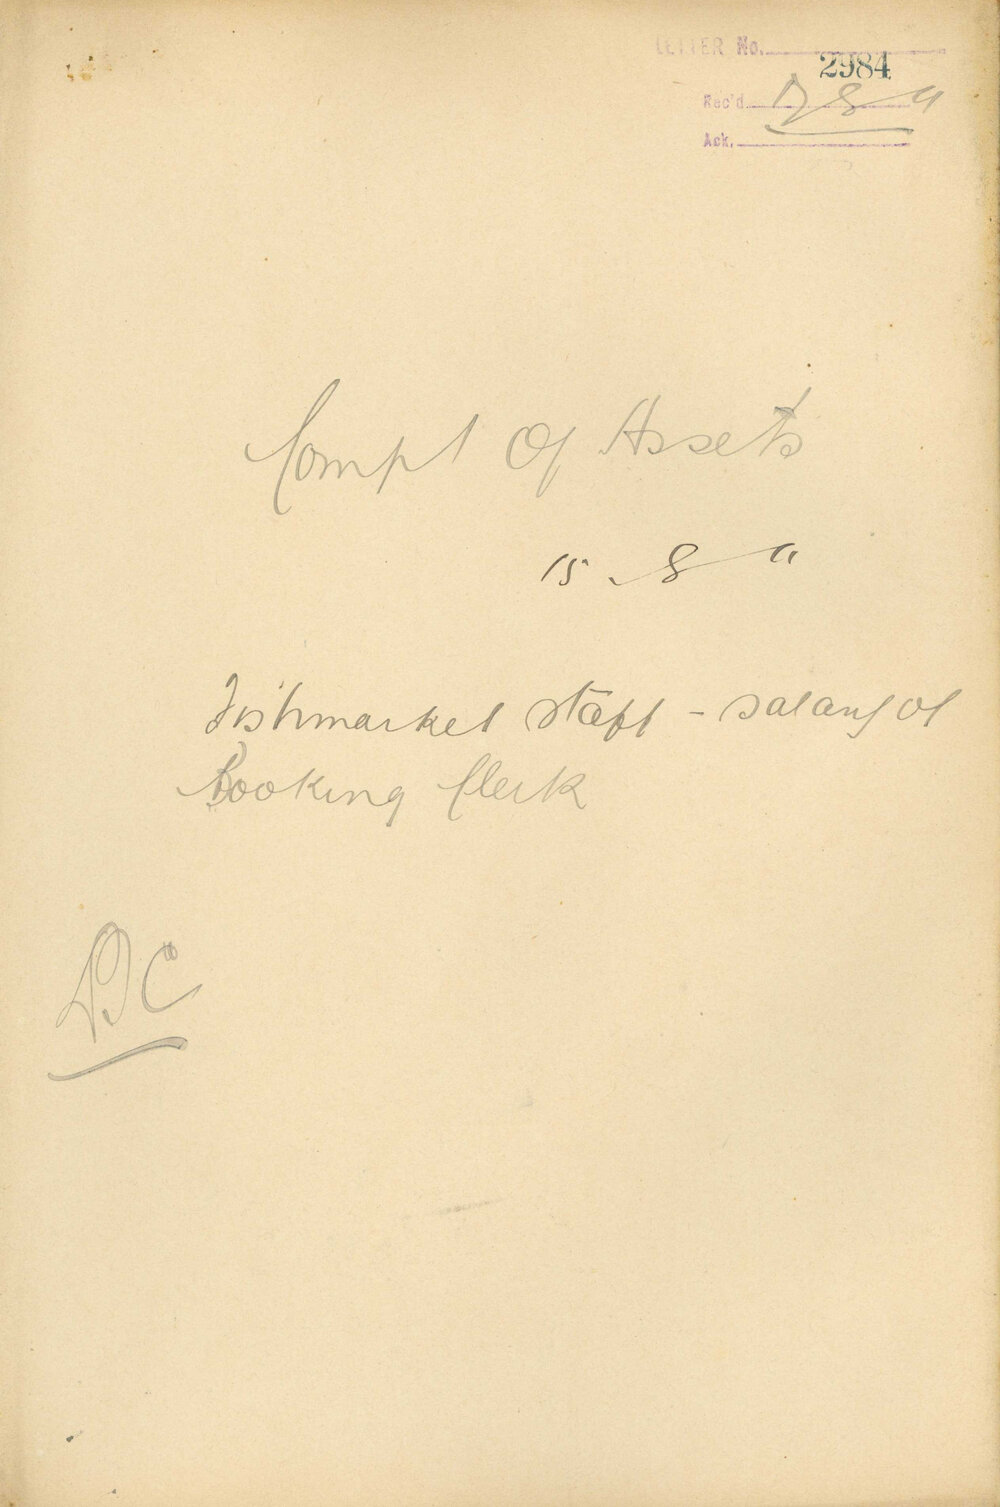 LETTER No. 2984
Rec'd 17 8 11
Ack.
Compt Of Assets
15 8 11
Fishmarket staff - salary of
Booking Clerk
DC